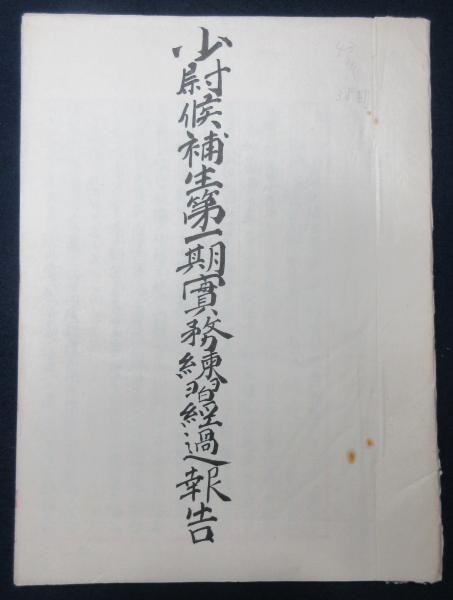 少尉候補生第一期實務練習經過報告